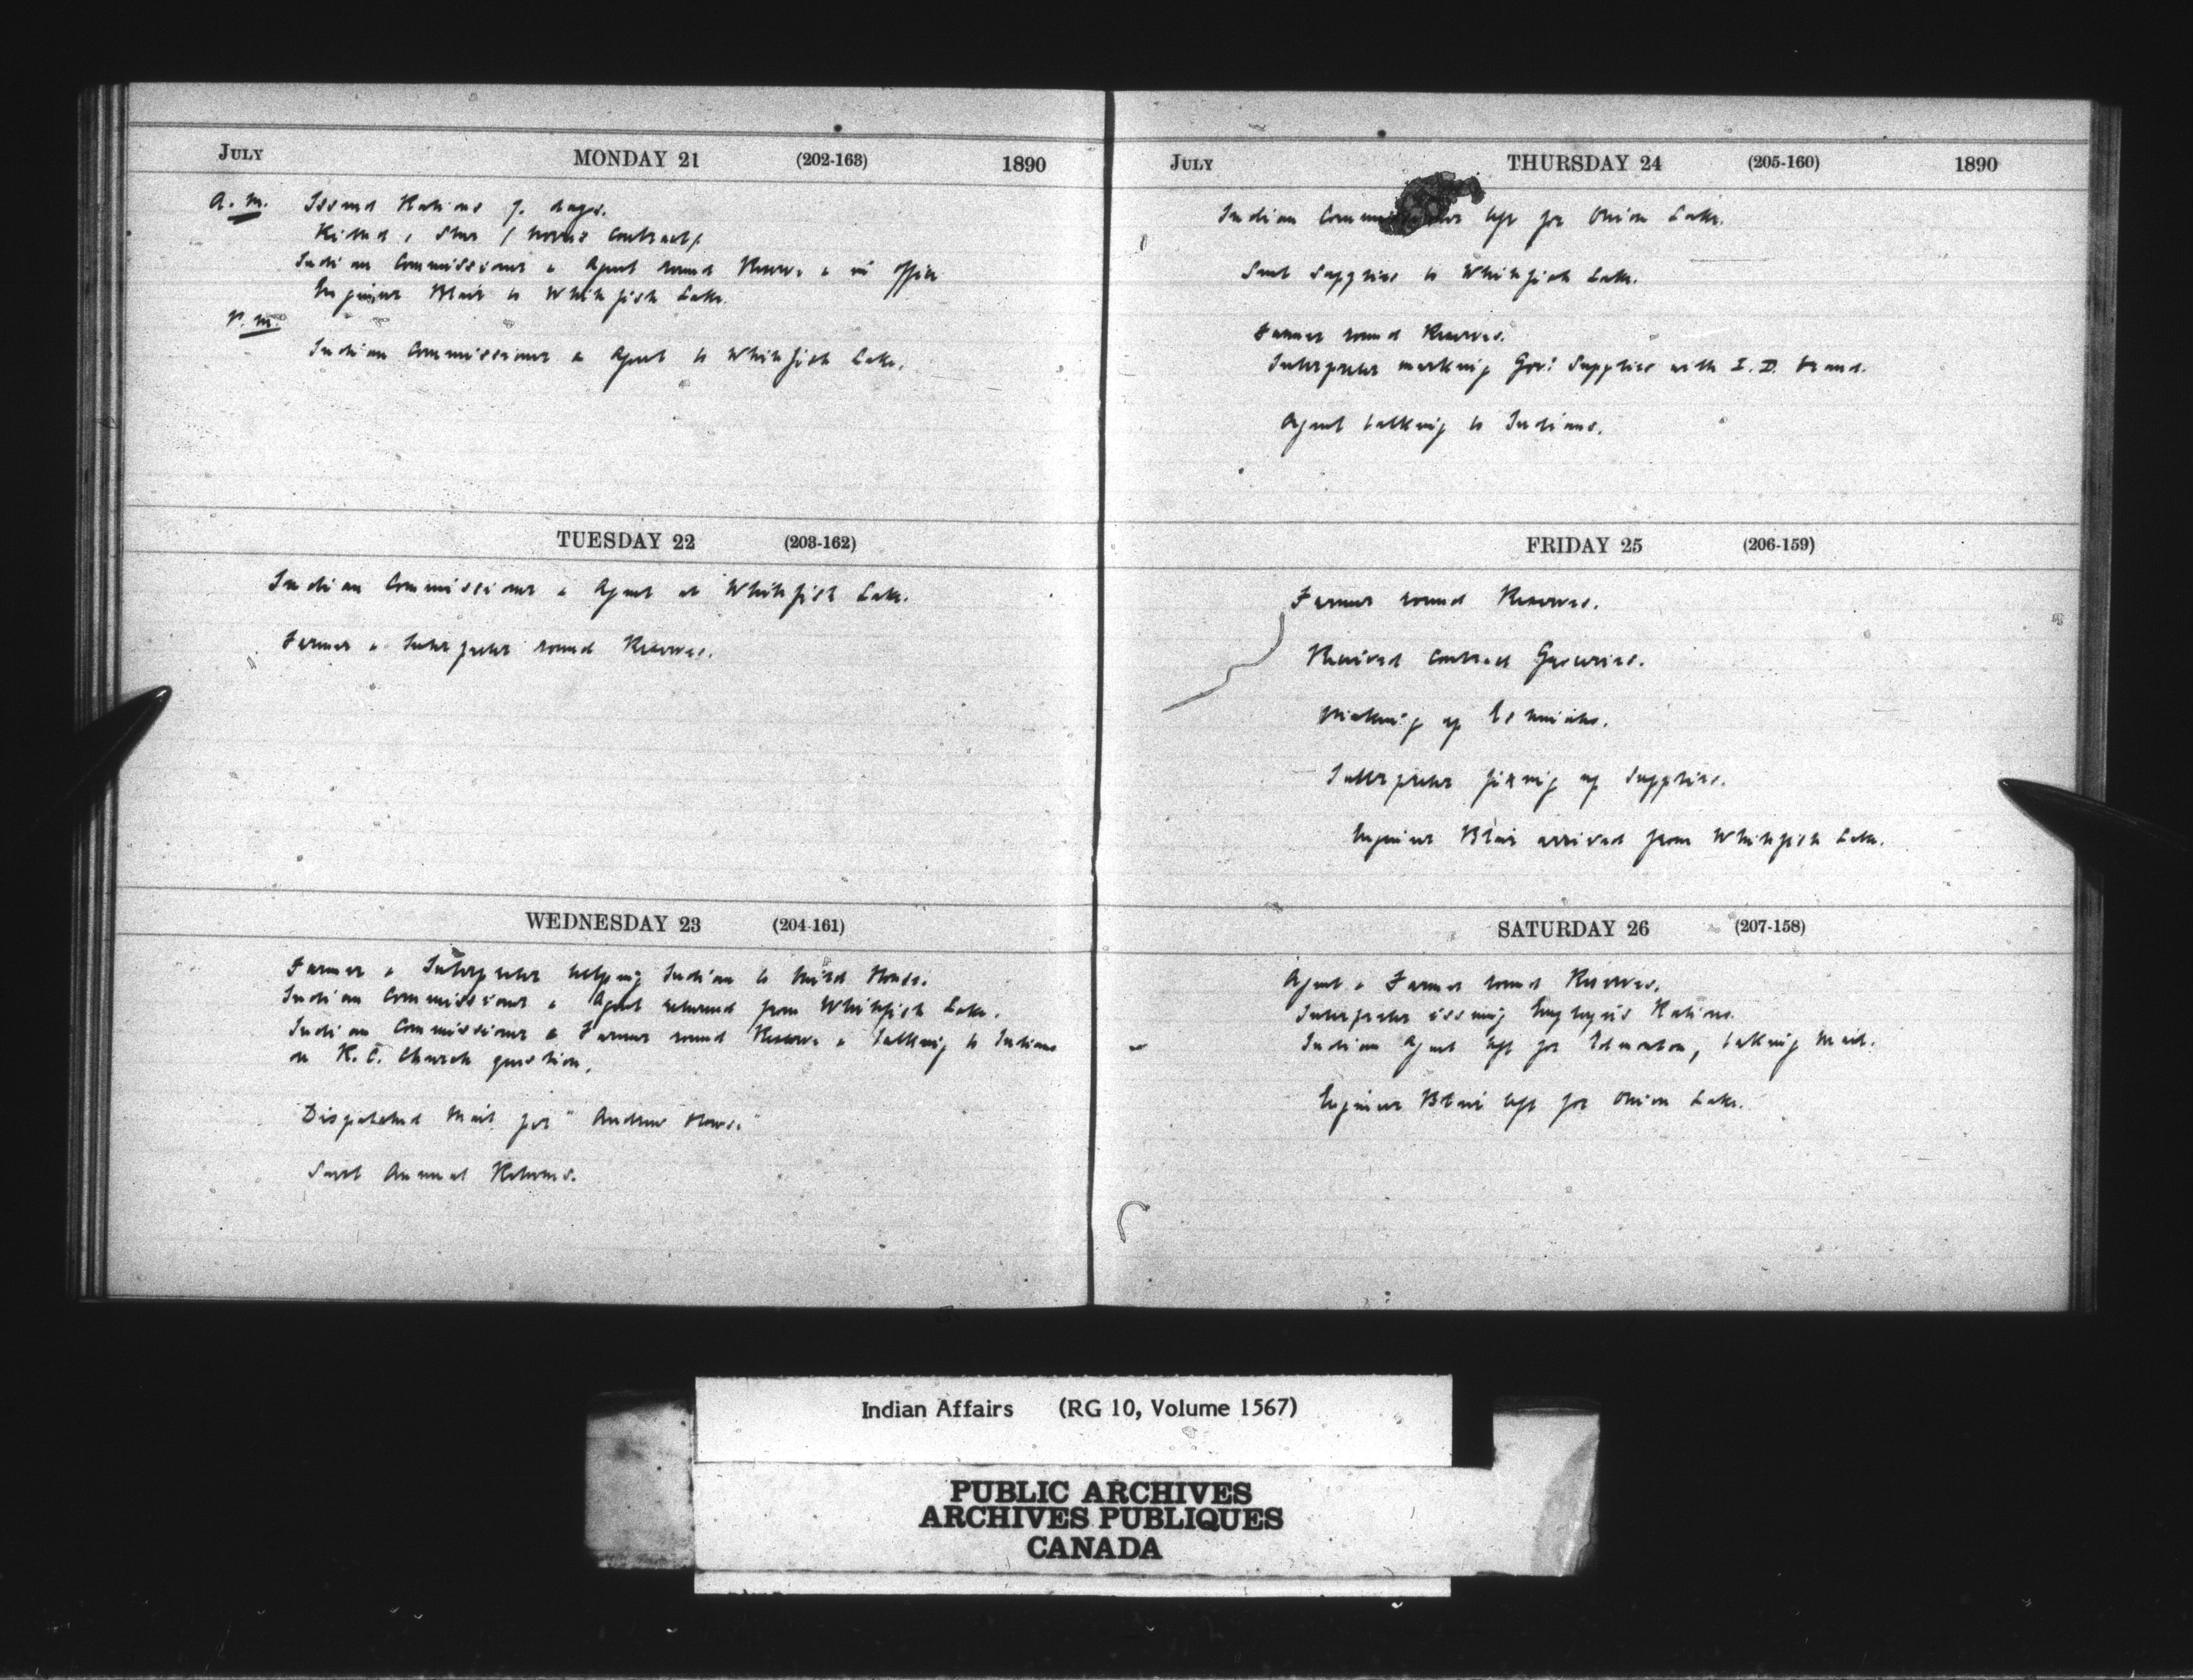 July MONDAY 21 (202-163) 1890
A.M. Issued Rations 7. days.
Killed 1 Steer (Norris Contract).
Indian Commissioner & Agent round Reserve & in office
Engineer Blair to Whitefish Lake.
P.M.
Indian Commissioner & Agent to Whitefish Lake.
TUESDAY 22 (203-162)
Indian Commissioner & Agent at Whitefish Lake.
Farmer & Interpreter round Reserves.
WEDNESDAY 23 (204-161)
Farmer & Interpreter helping Indian to build House.
Indian Commissioner & Agent returned from Whitefish Lake.
Indian Commissioner & Farmer round Reserve & talking to Indians
on R.C. Church question.
Dispatched Mail per "Andrew House"
Sent Annual Returns.
July THURSDAY 24 (205-160) 1890
Indian Commissioner left for Onion Lake.
Sent Supplies to Whitefish Lake.
Farmer round Reserves.
Interpreter marking Gov't Supplies with I.D. brand.
Agent talking to Indians.
FRIDAY 25 (206-159)
Farmer round Reserves.
Received contract Groceries.
Making up Estimates.
Interpreter fixing up Supplies.
Engineer Blair arrived from Whitefish Lake.
SATURDAY 26 (207-158)
Agent & Farmer round Reserves.
Interpreter issuing Employés Rations.
Indian Agent left for Edmonton, taking Mail.
Engineer Blair left for Onion Lake.
Indian Affairs (RG 10, Volume 1567)
PUBLIC ARCHIVES
ARCHIVES PUBLIQUES
CANADA